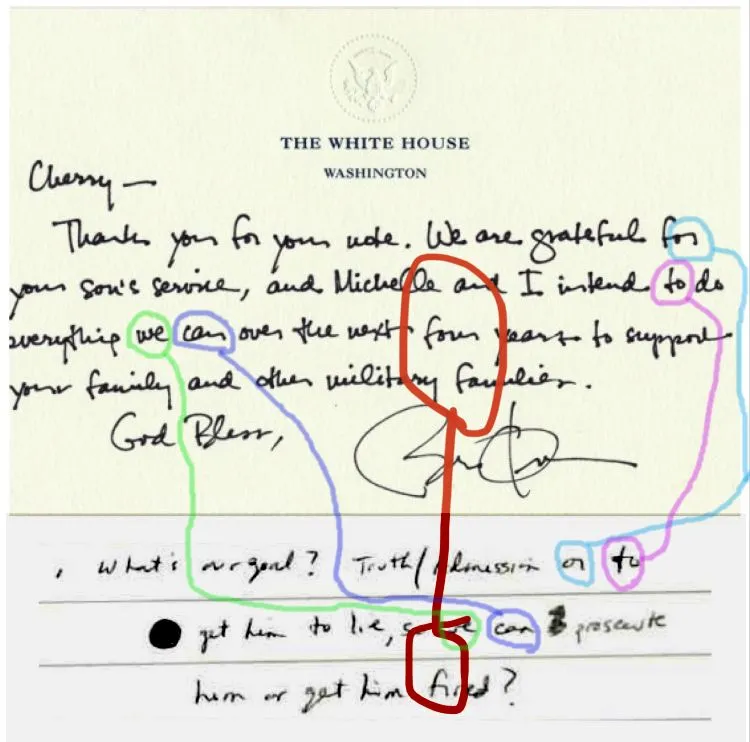 THE WHITE HOUSE
WASHINGTON
Cherry —
Thank you for your note. We are grateful for
your son's service, and Michelle and I intend to do
everything we can over the next four years to support
your family and other military families.
God Bless,
, What's our goal? Truth/Admission or to
get him to lie, so we can prosecute
him or get him fired?